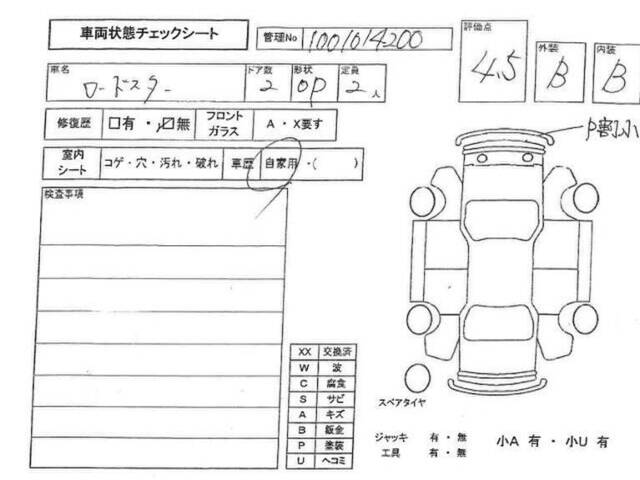 車両状態チェックシート
管理No 1001014200
評価点 4.5
外装 B
内装 B
車名 ロードスター
ドア数 2
形状 OP
定員 2人
修復歴 □有 ・ ☑無
フロントガラス A ・ X要す
室内シート コゲ・穴・汚れ・破れ
車歴 自家用 ・( )
検査事項
XX 交換済
W 波
C 腐食
S サビ
A キズ
B 鈑金
P 塗装
U ヘコミ
スペアタイヤ
ジャッキ 有 ・ 無
工具 有 ・ 無
小A 有 ・ 小U 有